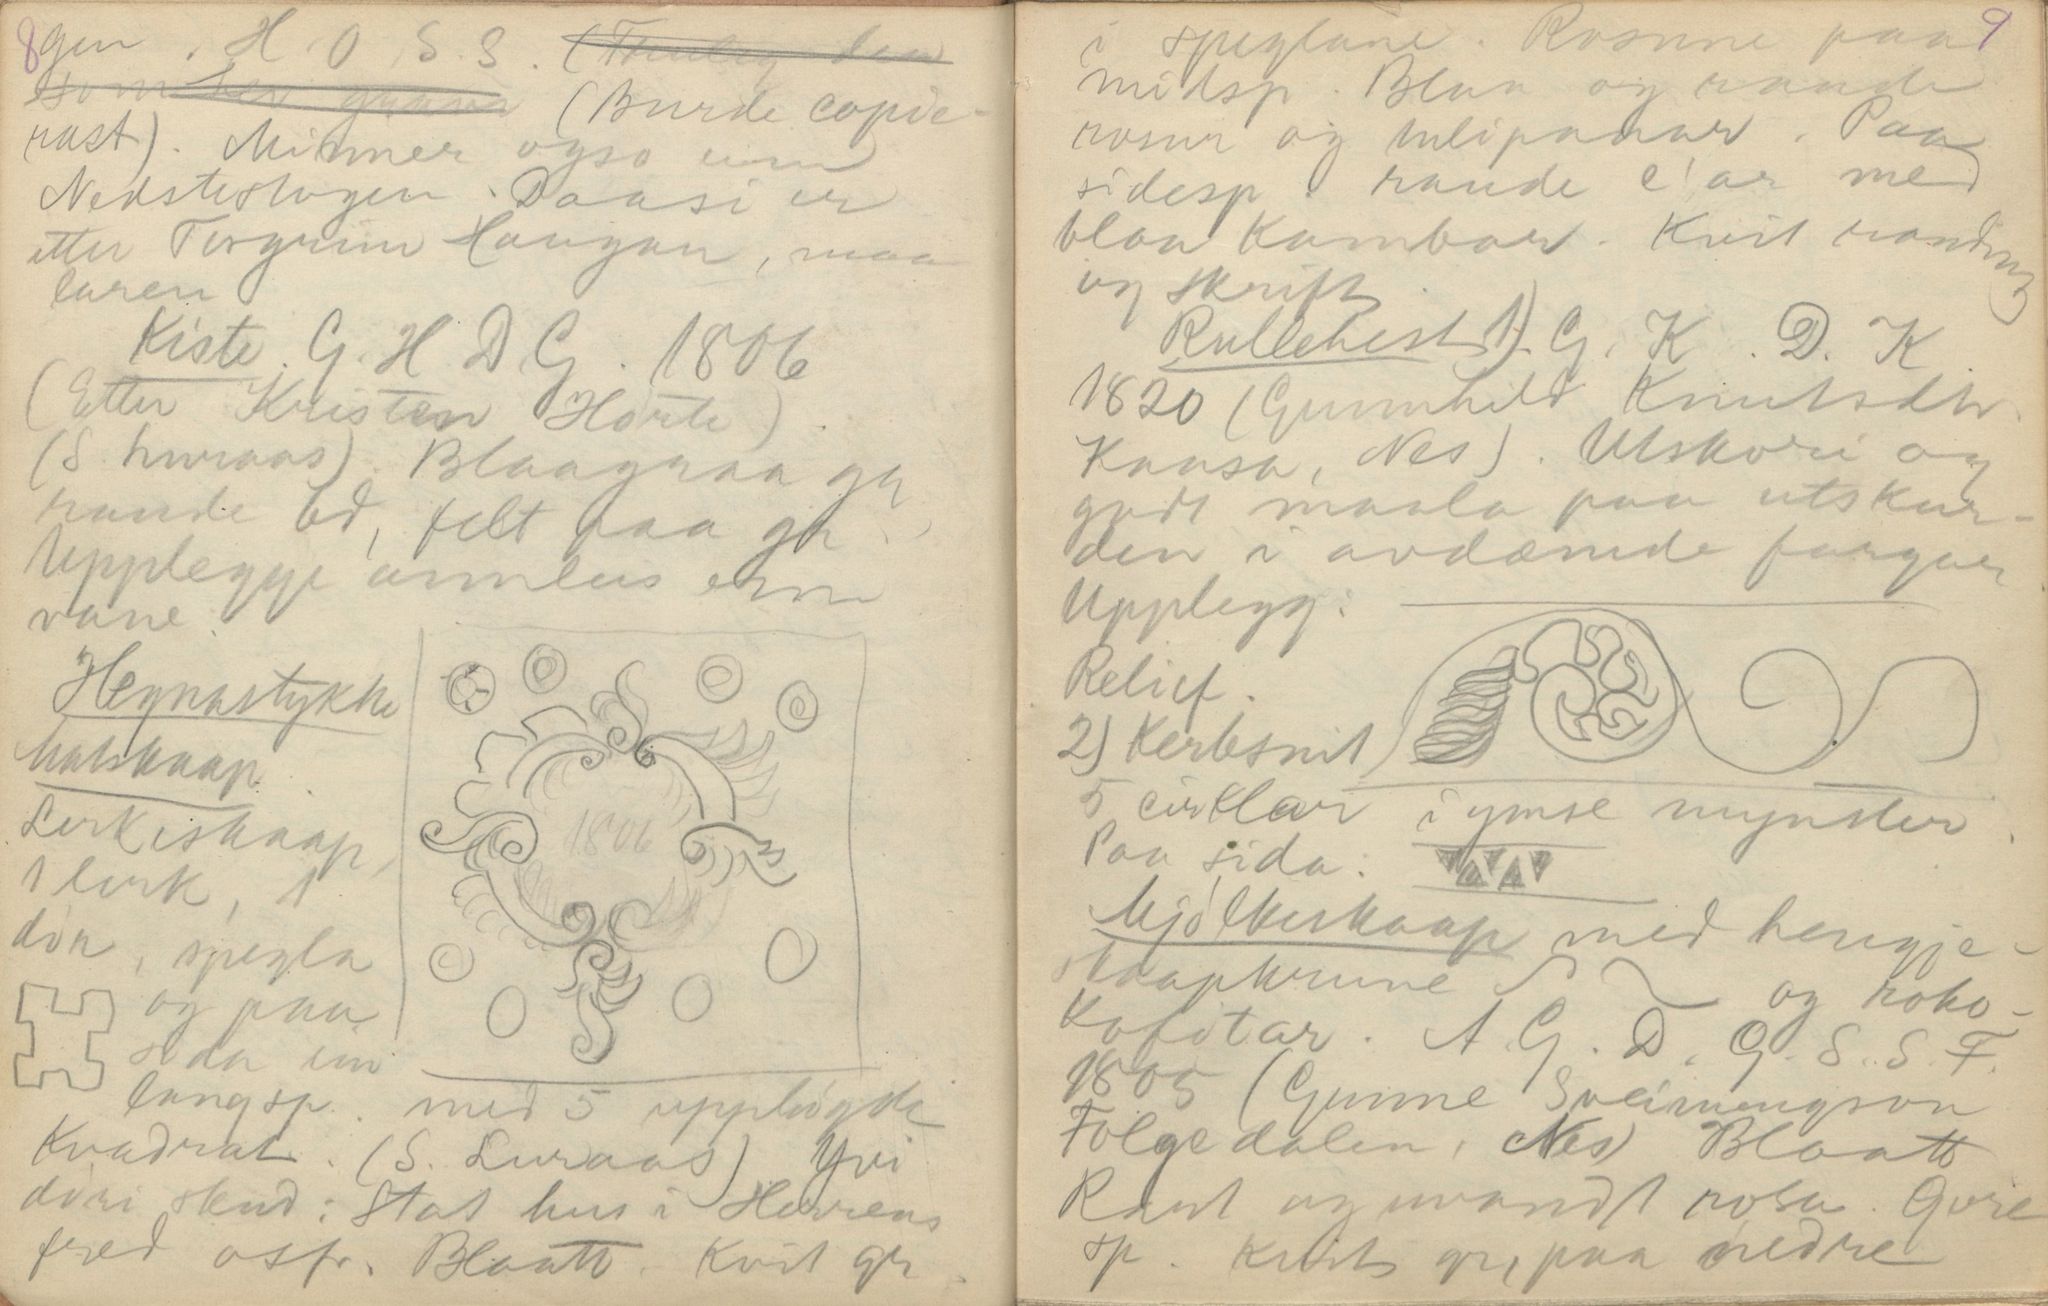 8
gen. H O S. S. (Truleg den
som her græve (Burde copie-
rast). Minner ogso um
Nedstestogen. Daasi er
etter Torgrim Haugan, maa
laren
Kiste. G. H. D G. 1806
(Etter Kristen Hørte).
(S. Luraas). Blaagraa gr
raude bd, felt paa gr.
Upplegge annleis enn
vane.
Hegnastykke
Matskaap.
Lerkeskaap,
1 lerk, 1
dør, spegla
og paa
sida ein
langsp. med 5 upphøgde
Kvadrat. (S. Luraas) Yvi
døri skud: Stat hus i Herrens
fred osfr. Blaatt. Kvit gr.
1806
9
i speglane. Rosune paa
midsp. Blaa og raude
rosur og tulipanar. Paa
sidesp. raude c'ar med
blaa Kambar. Kvit randing
og skrift.
Rullehest 1). G. K. D. K
1820 (Gunnhild Knutsdtr.
Kaasa, Nes). Utskori og
godt maala paa utskur-
den i avdæmde fargar
Upplegg:
Relief.
2) Kerbsnit
5 cirklar i ymse mynster.
Paa sida:
Mjølkeskaap med hengje-
skaapkrune og roko-
koføtar. A. G. D. G. S. S. F.
1805 (Gunne Sveinungson
Følgedalen, Nes) Blaatt
Raut og uvandt rosa. Øvre
sp. Kvit gr, paa nedre